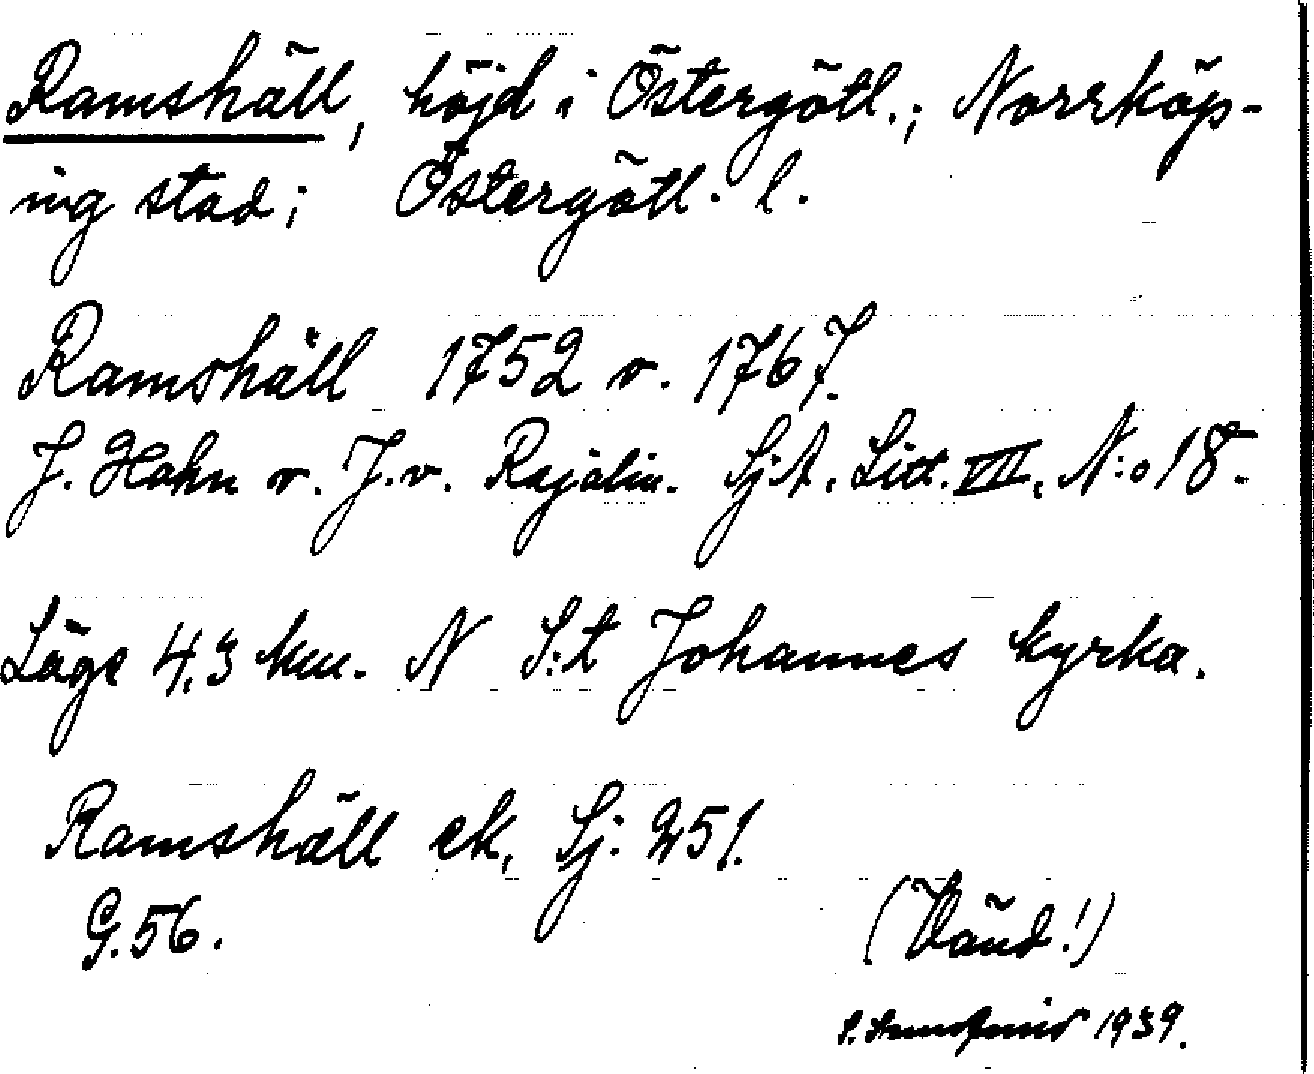 Ramshäll, höjd i Östergötl.; Norrköp-
ing stad; Östergötl. l.
Ramshäll 1752 o. 1767.
J. Hahn o. J. v. Rajalin. Sj.A. Litt. VII. N:o 18.
Läge 4,3 km. N S:t Johannes kyrka.
Ramshäll ek. Sj: 251.
G. 56.
(Vänd!)
S. 1939.